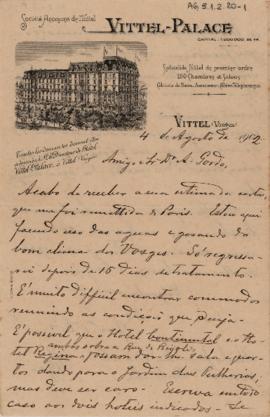 AG 5.1.2.20-1
Société Anonyme de l'Hôtel
VITTEL-PALACE
CAPITAL: 1.200.000 DE FR.
Splendide Hôtel de premier ordre
200 Chambres et Salons
VITTEL (Vosges)
4 de Agosto de 1902
Amigo Sr. Dr. A. Gordo,
Acabo de receber a sua estimada carta,
que me foi remettida de Paris. Estou aqui
fazendo uso das aguas e gosando do
bom clima dos Vosges. Só regressa-
rei depois de 15 dias de tratamento.
É muito difficil encontrar commodos
reunindo as condições que deseja.
É possivel que o Hotel Continental e o Ho-
ambos sobre a Rue de Rivoli
tel Regina possam dar lhe sala e quar-
tos dando para o Jardim das Tulherias,
mas deve ser caro. Escreva em todo
caso aos dois hoteis indicados.